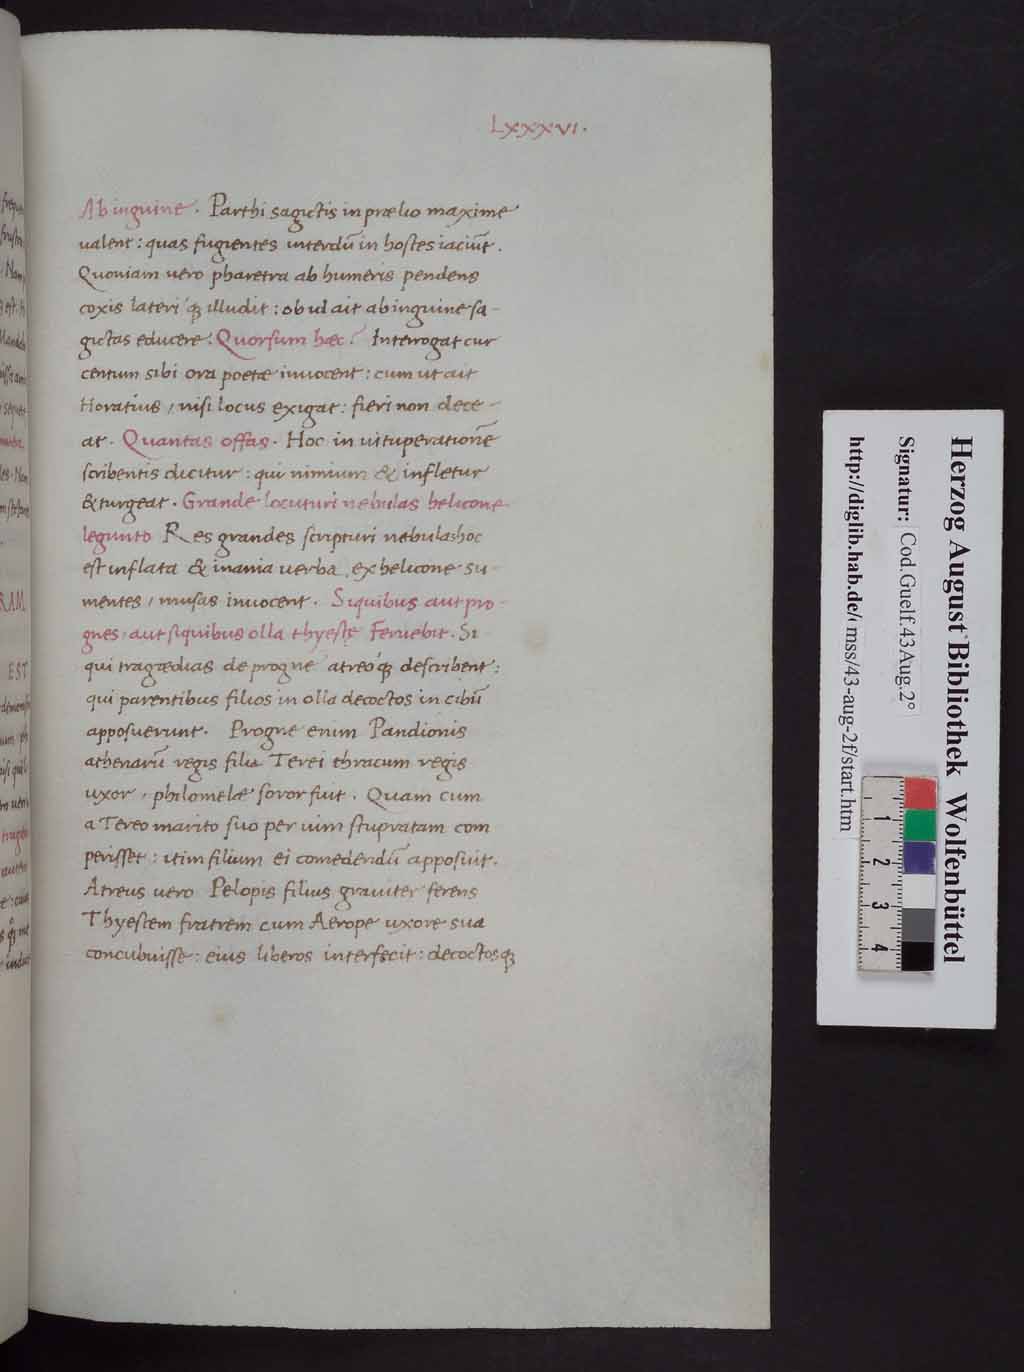 LXXXVI.
Ab inguine. Parthi sagictis in prælio maxime
valent: quas fugientes interdū in hostes iaciūt.
Quoniam vero pharetra ab humeris pendens
coxis lateriq; illudit: ob id ait ab inguine sa-
gictas educere. Quorsum hæc? Interrogat cur
centum sibi ora poetæ invocent: cum ut ait
Horatius, nisi locus exigat: fieri non dece-
at. Quantas offas. Hoc in vituperationē
scribentis dicitur: qui nimium & infletur
& turgeat. Grande locuturi nebulas helicone
legunto Res grandes scripturi nebulas hoc
est inflata & inania verba, ex helicone su-
mentes, musas invocent. Siquibus aut pro-
gnes, aut siquibus olla thyestę Feruebit. Si
qui tragædias de progne atreoq; describent:
qui parentibus filios in olla decoctos in cibū
apposuerunt. Progne enim Pandionis
athenarū regis filia Terei thracum regis
uxor, philomelæ soror fuit. Quam cum
a Tereo marito suo per vim stupratam com
perisset: itim filium ei comedendū apposuit.
Atreus vero Pelopis filius graviter ferens
Thyestem fratrem cum Aerope uxore sua
concubuisse: eius liberos interfecit: decoctosq;
Herzog August Bibliothek Wolfenbüttel
Signatur: Cod.Guelf.43 Aug.2°
http://diglib.hab.de/ mss/43-aug-2f/start.htm
1 2 3 4